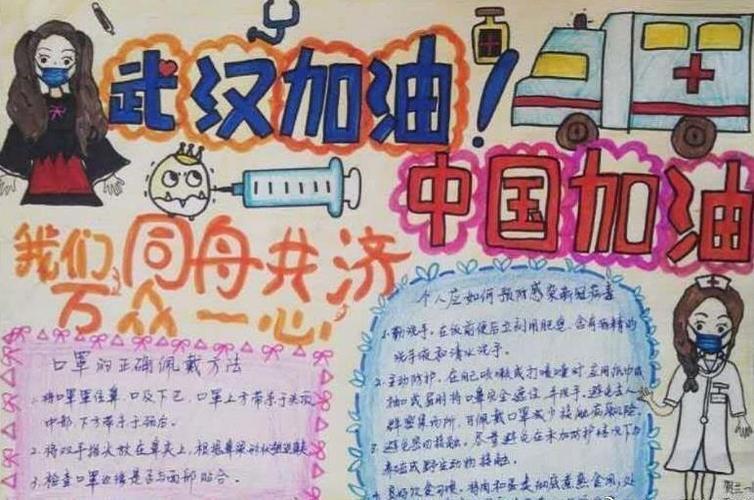 武汉加油!
中国加油
我们同舟共济
万众一心
口罩的正确佩戴方法
1.将口罩罩住鼻、口及下巴,口罩上方带系于头顶
中部,下方带系于颈后。
2.将双手指尖放在鼻夹上,根据鼻梁
3.检查口罩边缘是否与面部贴合。
个人应如何预防感染新冠病毒
1.勤洗手。在饭前便后立刻用肥皂,含有酒精的
洗手液和清水洗手。
2.主动防护。在自己咳嗽或打喷嚏时,应用纸巾或
袖口或屈肘将口鼻完全遮住,并洗手。避免去人
群密集场所,可佩戴口罩减少接触病
3.避免密切接触。尽量避免在未加防护情况下与
养殖或野生动物接触。
4.良好饮食习惯。将肉和蛋类彻底煮熟食用,处